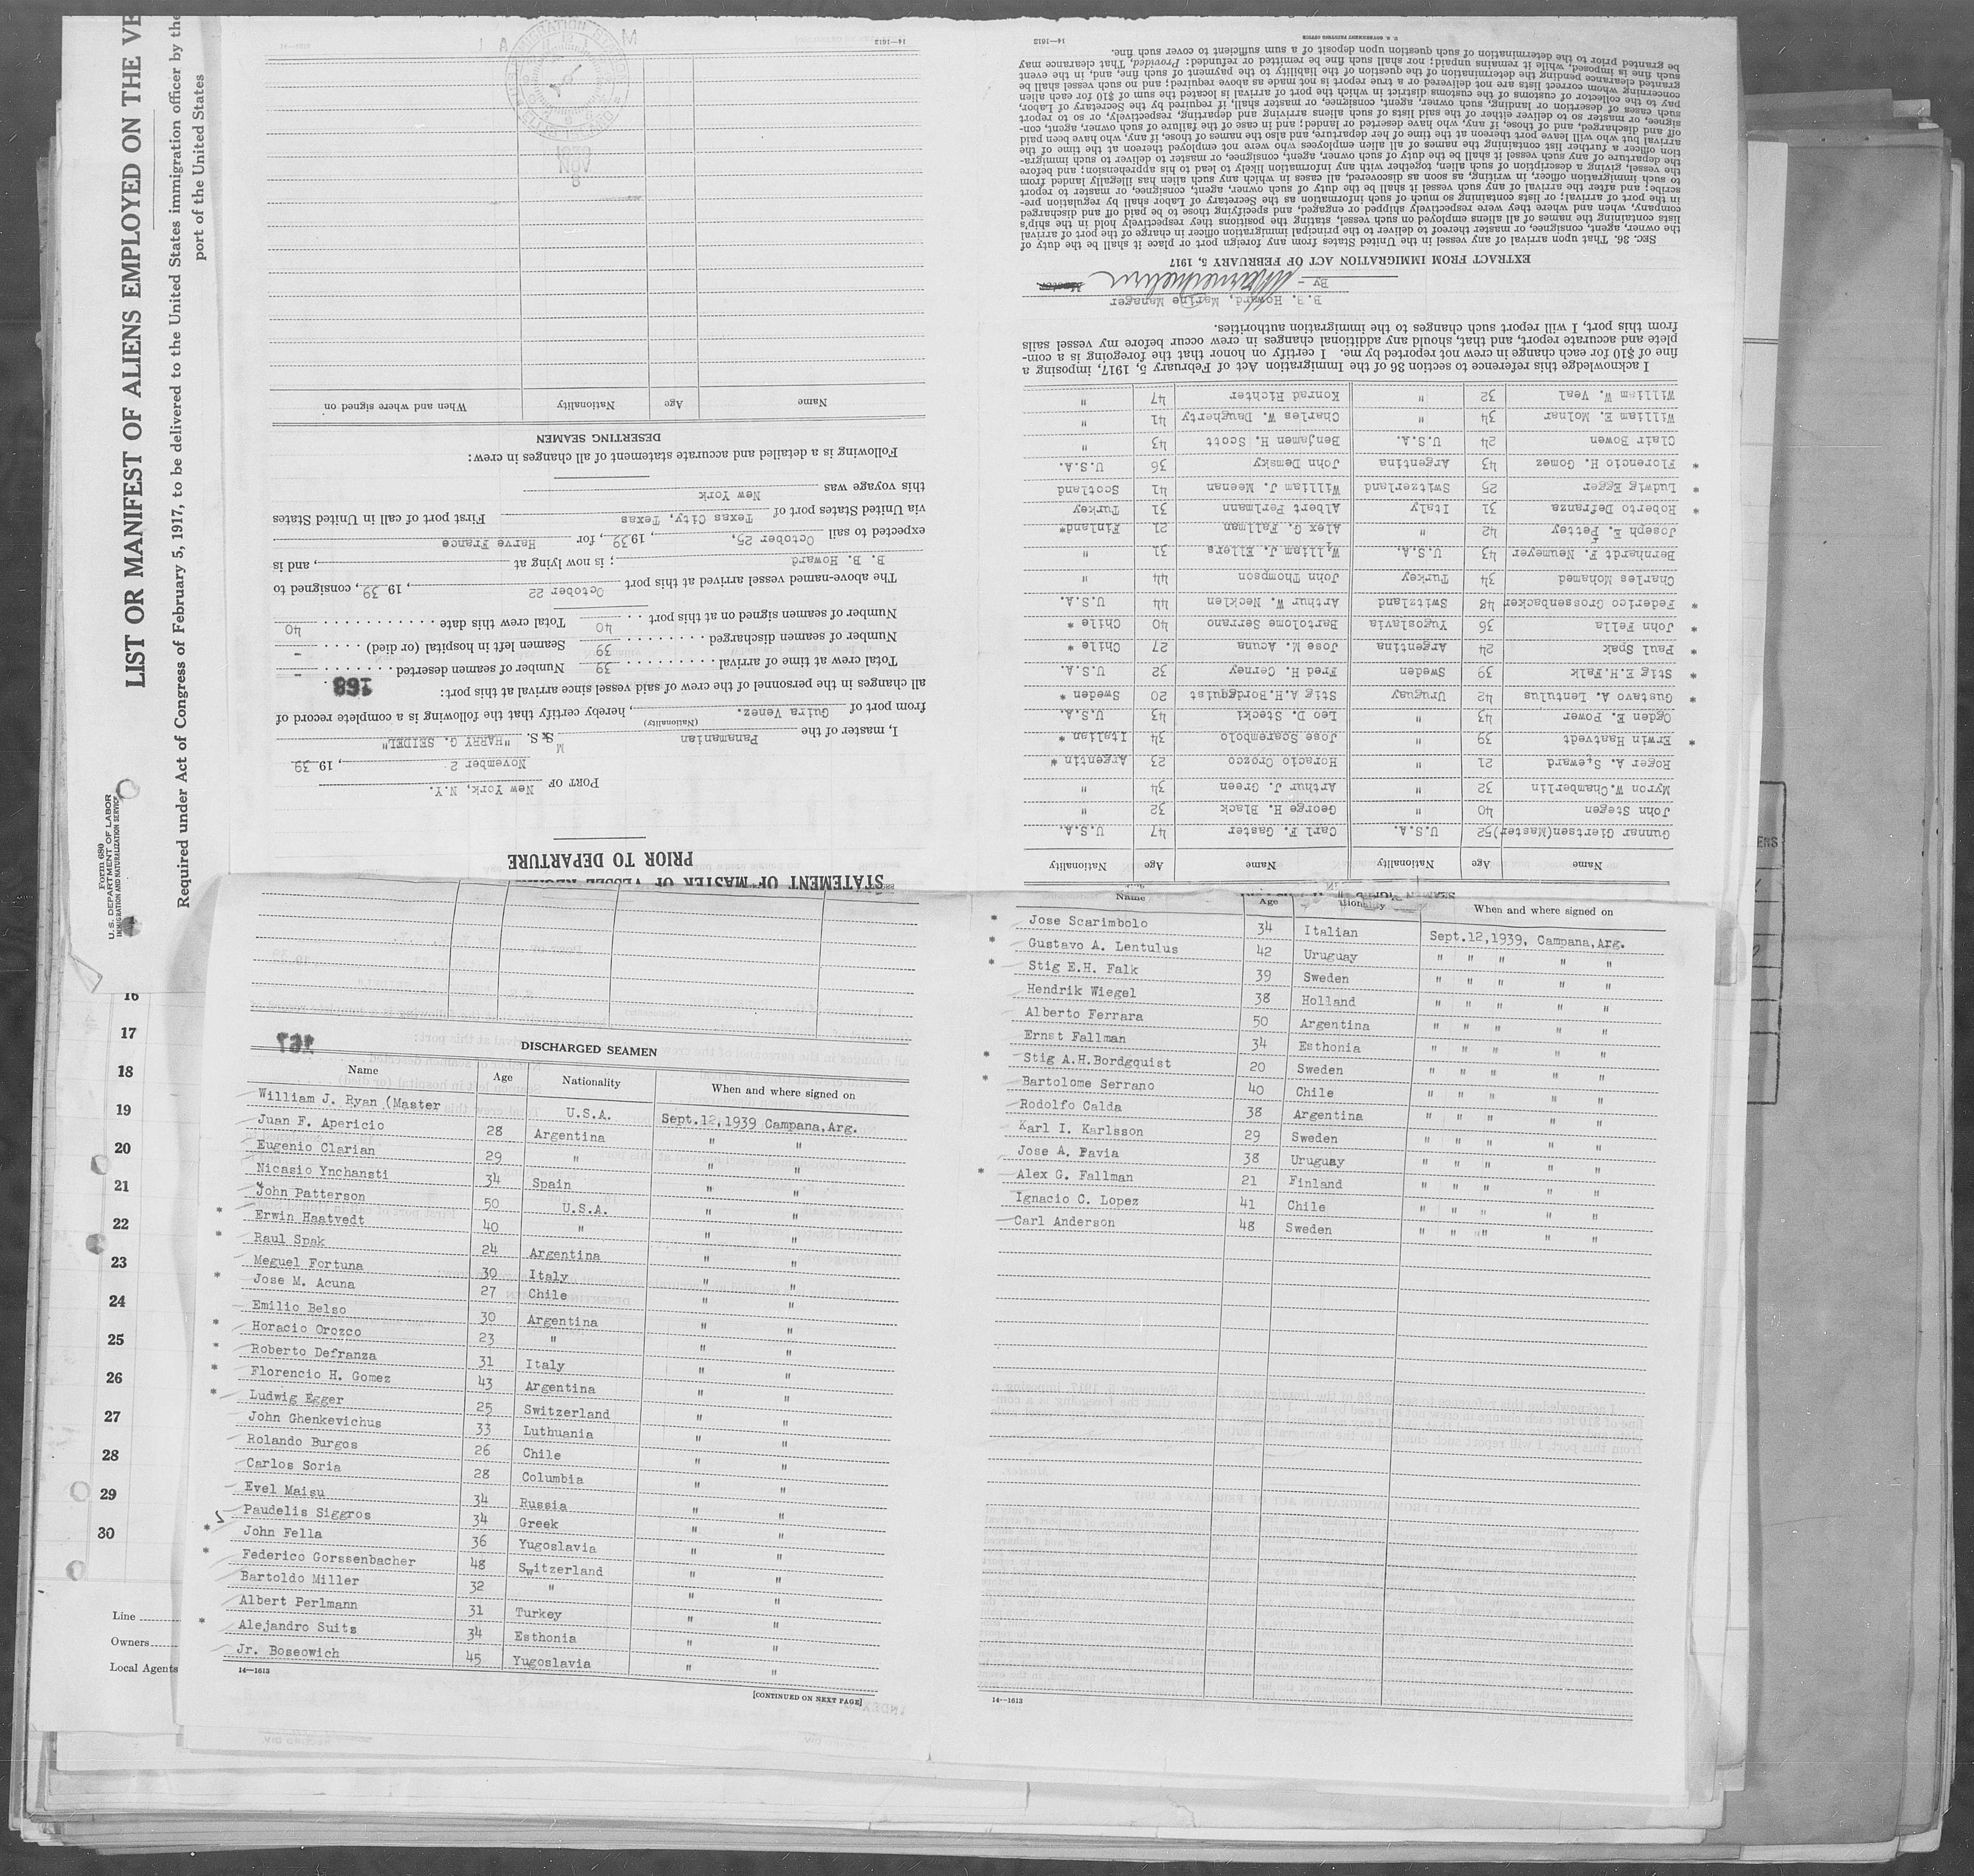 LIST OR MANIFEST OF ALIENS EMPLOYED ON THE VE
Required under Act of Congress of February 5, 1917, to be delivered to the United States immigration officer by the
port of the United States
Form 680
U. S. DEPARTMENT OF LABOR
IMMIGRATION AND NATURALIZATION SERVICE
16
17
18
19
20
21
22
23
24
25
26
27
28
29
30
Line
Owners
Local Agents
STATEMENT OF MASTER OF VESSEL
PRIOR TO DEPARTURE
PORT OF New York, N.Y.
November 2, 1939
I, master of the Panamanian M S.S. "HARRY G. SEIDEL"
(Nationality)
from port of Guira Venez., hereby certify that the following is a complete record of
all changes in the personnel of the crew of said vessel since arrival at this port:
168
Total crew at time of arrival 39 Number of seamen deserted -
Number of seamen discharged 39 Seamen left in hospital (or died) -
Number of seamen signed on at this port 40 Total crew this date 40
The above-named vessel arrived at this port October 22, 1939, consigned to
B. B. Howard; is now lying at , and is
expected to sail October 25, , 1939, for Harve France
via United States port of Texas City, Texas First port of call in United States
this voyage was New York
Following is a detailed and accurate statement of all changes in crew:
DESERTING SEAMEN
Name Age Nationality When and where signed on
14—1613
SEAMEN SIGNED
Name Age Nationality Name Age Nationality
Gunnar Gjertsen(Master) 52 U.S.A. Carl F. Gaster 47 U.S.A.
John Stegen 40 " George H. Black 32 "
Myron W. Chamberlin 32 " Arthur J. Green 34 "
Roger A. Seward 21 " Horacio Orozco 23 Argentin *
* Erwin Haatvedt 39 " Jose Scarembolo 34 Italian *
Ogden E. Power 43 " Leo D. Stecki 43 U.S.A.
* Gustavo A. Lentulus 42 Uruguay Stig A.H.Bordgquist 20 Sweden *
* Stig E.H.Falk 39 Sweden Fred H. Cerney 32 U.S.A.
* Paul Spak 24 Argentina Jose M. Acuna 27 Chile *
* John Fella 36 Yugoslavia Bartolome Serrano 40 Chile *
* Federico Grossenbacker 48 Switzland Arthur W. Necklen 44 U.S.A.
Charles Mohamed 34 Turkey John Thompson 44 "
Bernhardt F. Neumeyer 43 U.S.A. William J. Ellers 31 "
Joseph E. Pettey 42 " Alex G. Fallman 21 Finland*
* Roberto Defranza 31 Italy Albert Perlmann 31 Turkey
* Ludwig Egger 25 Switzerland William J. Meenan 41 Scotland
* Florencio H. Gomez 43 Argentina John Demsky 36 U.S.A.
Clair Bowen 24 U.S.A. Benjamen H. Scott 43 "
William E. Molnar 34 " Charles W. Daugherty 41 "
William W. Veal 32 " Konrad Richter 47 "
I acknowledge this reference to section 36 of the Immigration Act of February 5, 1917, imposing a
fine of $10 for each change in crew not reported by me. I certify on honor that the foregoing is a com-
plete and accurate report, and that, should any additional changes in crew occur before my vessel sails
from this port, I will report such changes to the immigration authorities.
B. B. Howard, Marine Manager
By -
EXTRACT FROM IMMIGRATION ACT OF FEBRUARY 5, 1917
SEC. 36. That upon arrival of any vessel in the United States from any foreign port or place it shall be the duty of
the owner, agent, consignee, or master thereof to deliver to the principal immigration officer in charge of the port of arrival
lists containing the names of all aliens employed on such vessel, stating the positions they respectively hold in the ship's
company, when and where they were respectively shipped or engaged, and specifying those to be paid off and discharged
in the port of arrival; or lists containing so much of such information as the Secretary of Labor shall by regulation pre-
scribe; and after the arrival of any such vessel it shall be the duty of such owner, agent, consignee, or master to report
to such immigration officer, in writing, as soon as discovered, all cases in which any such alien has illegally landed from
the vessel, giving a description of such alien, together with any information likely to lead to his apprehension; and before
the departure of any such vessel it shall be the duty of such owner, agent, consignee, or master to deliver to such immigra-
tion officer a further list containing the names of all alien employees who were not employed thereon at the time of the
arrival but who will leave port thereon at the time of her departure, and also the names of those, if any, who have been paid
off and discharged, and of those, if any, who have deserted or landed; and in case of the failure of such owner, agent, con-
signee, or master so to deliver either of the said lists of such aliens arriving and departing, respectively, or so to report
such cases of desertion or landing, such owner, agent, consignee, or master shall, if required by the Secretary of Labor,
pay to the collector of customs of the customs district in which the port of arrival is located the sum of $10 for each alien
concerning whom correct lists are not delivered or a true report is not made as above required; and no such vessel shall be
granted clearance pending the determination of the question of the liability to the payment of such fine, and, in the event
such fine is imposed, while it remains unpaid; nor shall such fine be remitted or refunded: Provided, That clearance may
be granted prior to the determination of such question upon deposit of a sum sufficient to cover such fine.
U. S. GOVERNMENT PRINTING OFFICE
14—1613
167
DISCHARGED SEAMEN
Name Age Nationality When and where signed on
William J. Ryan (Master U.S.A. Sept.12,1939 Campana,Arg.
Juan F. Apericio 28 Argentina " "
Eugenio Clarian 29 " " "
Nicasio Ynchansti 34 Spain " "
John Patterson 50 U.S.A. " "
* Erwin Haatvedt 40 " " "
* Raul Spak 24 Argentina " "
Meguel Fortuna 30 Italy " "
* Jose M. Acuna 27 Chile " "
Emilio Belso 30 Argentina " "
* Horacio Orozco 23 " " "
* Roberto Defranza 31 Italy " "
* Florencio H. Gomez 43 Argentina " "
* Ludwig Egger 25 Switzerland " "
John Ghenkevichus 33 Luthuania " "
Rolando Burgos 26 Chile " "
Carlos Soria 28 Columbia " "
Evel Maisu 34 Russia " "
Paudelis Siggros 34 Greek " "
* John Fella 36 Yugoslavia " "
* Federico Gorssenbacher 48 Switzerland " "
Bartoldo Miller 32 " " "
Albert Perlmann 31 Turkey " "
* Alejandro Suits 34 Esthonia " "
Jr. Boseowich 45 Yugoslavia " "
14—1613
[CONTINUED ON NEXT PAGE]
Name Age Nationality When and where signed on
* Jose Scarimbolo 34 Italian Sept.12,1939, Campana,Arg.
* Gustavo A. Lentulus 42 Uruguay " " " " "
* Stig E.H. Falk 39 Sweden " " " " "
Hendrik Wiegel 38 Holland " " " " "
Alberto Ferrara 50 Argentina " " " " "
Ernst Fallman 34 Esthonia " " " " "
* Stig A.H.Bordgquist 20 Sweden " " " " "
* Bartolome Serrano 40 Chile " " " " "
Rodolfo Calda 38 Argentina " " " " "
Karl I. Karlsson 29 Sweden " " " " "
Jose A. Pavia 38 Uruguay " " " " "
* Alex G. Fallman 21 Finland " " " " "
Ignacio C. Lopez 41 Chile " " " " "
Carl Anderson 48 Sweden " " " " "
14—1613